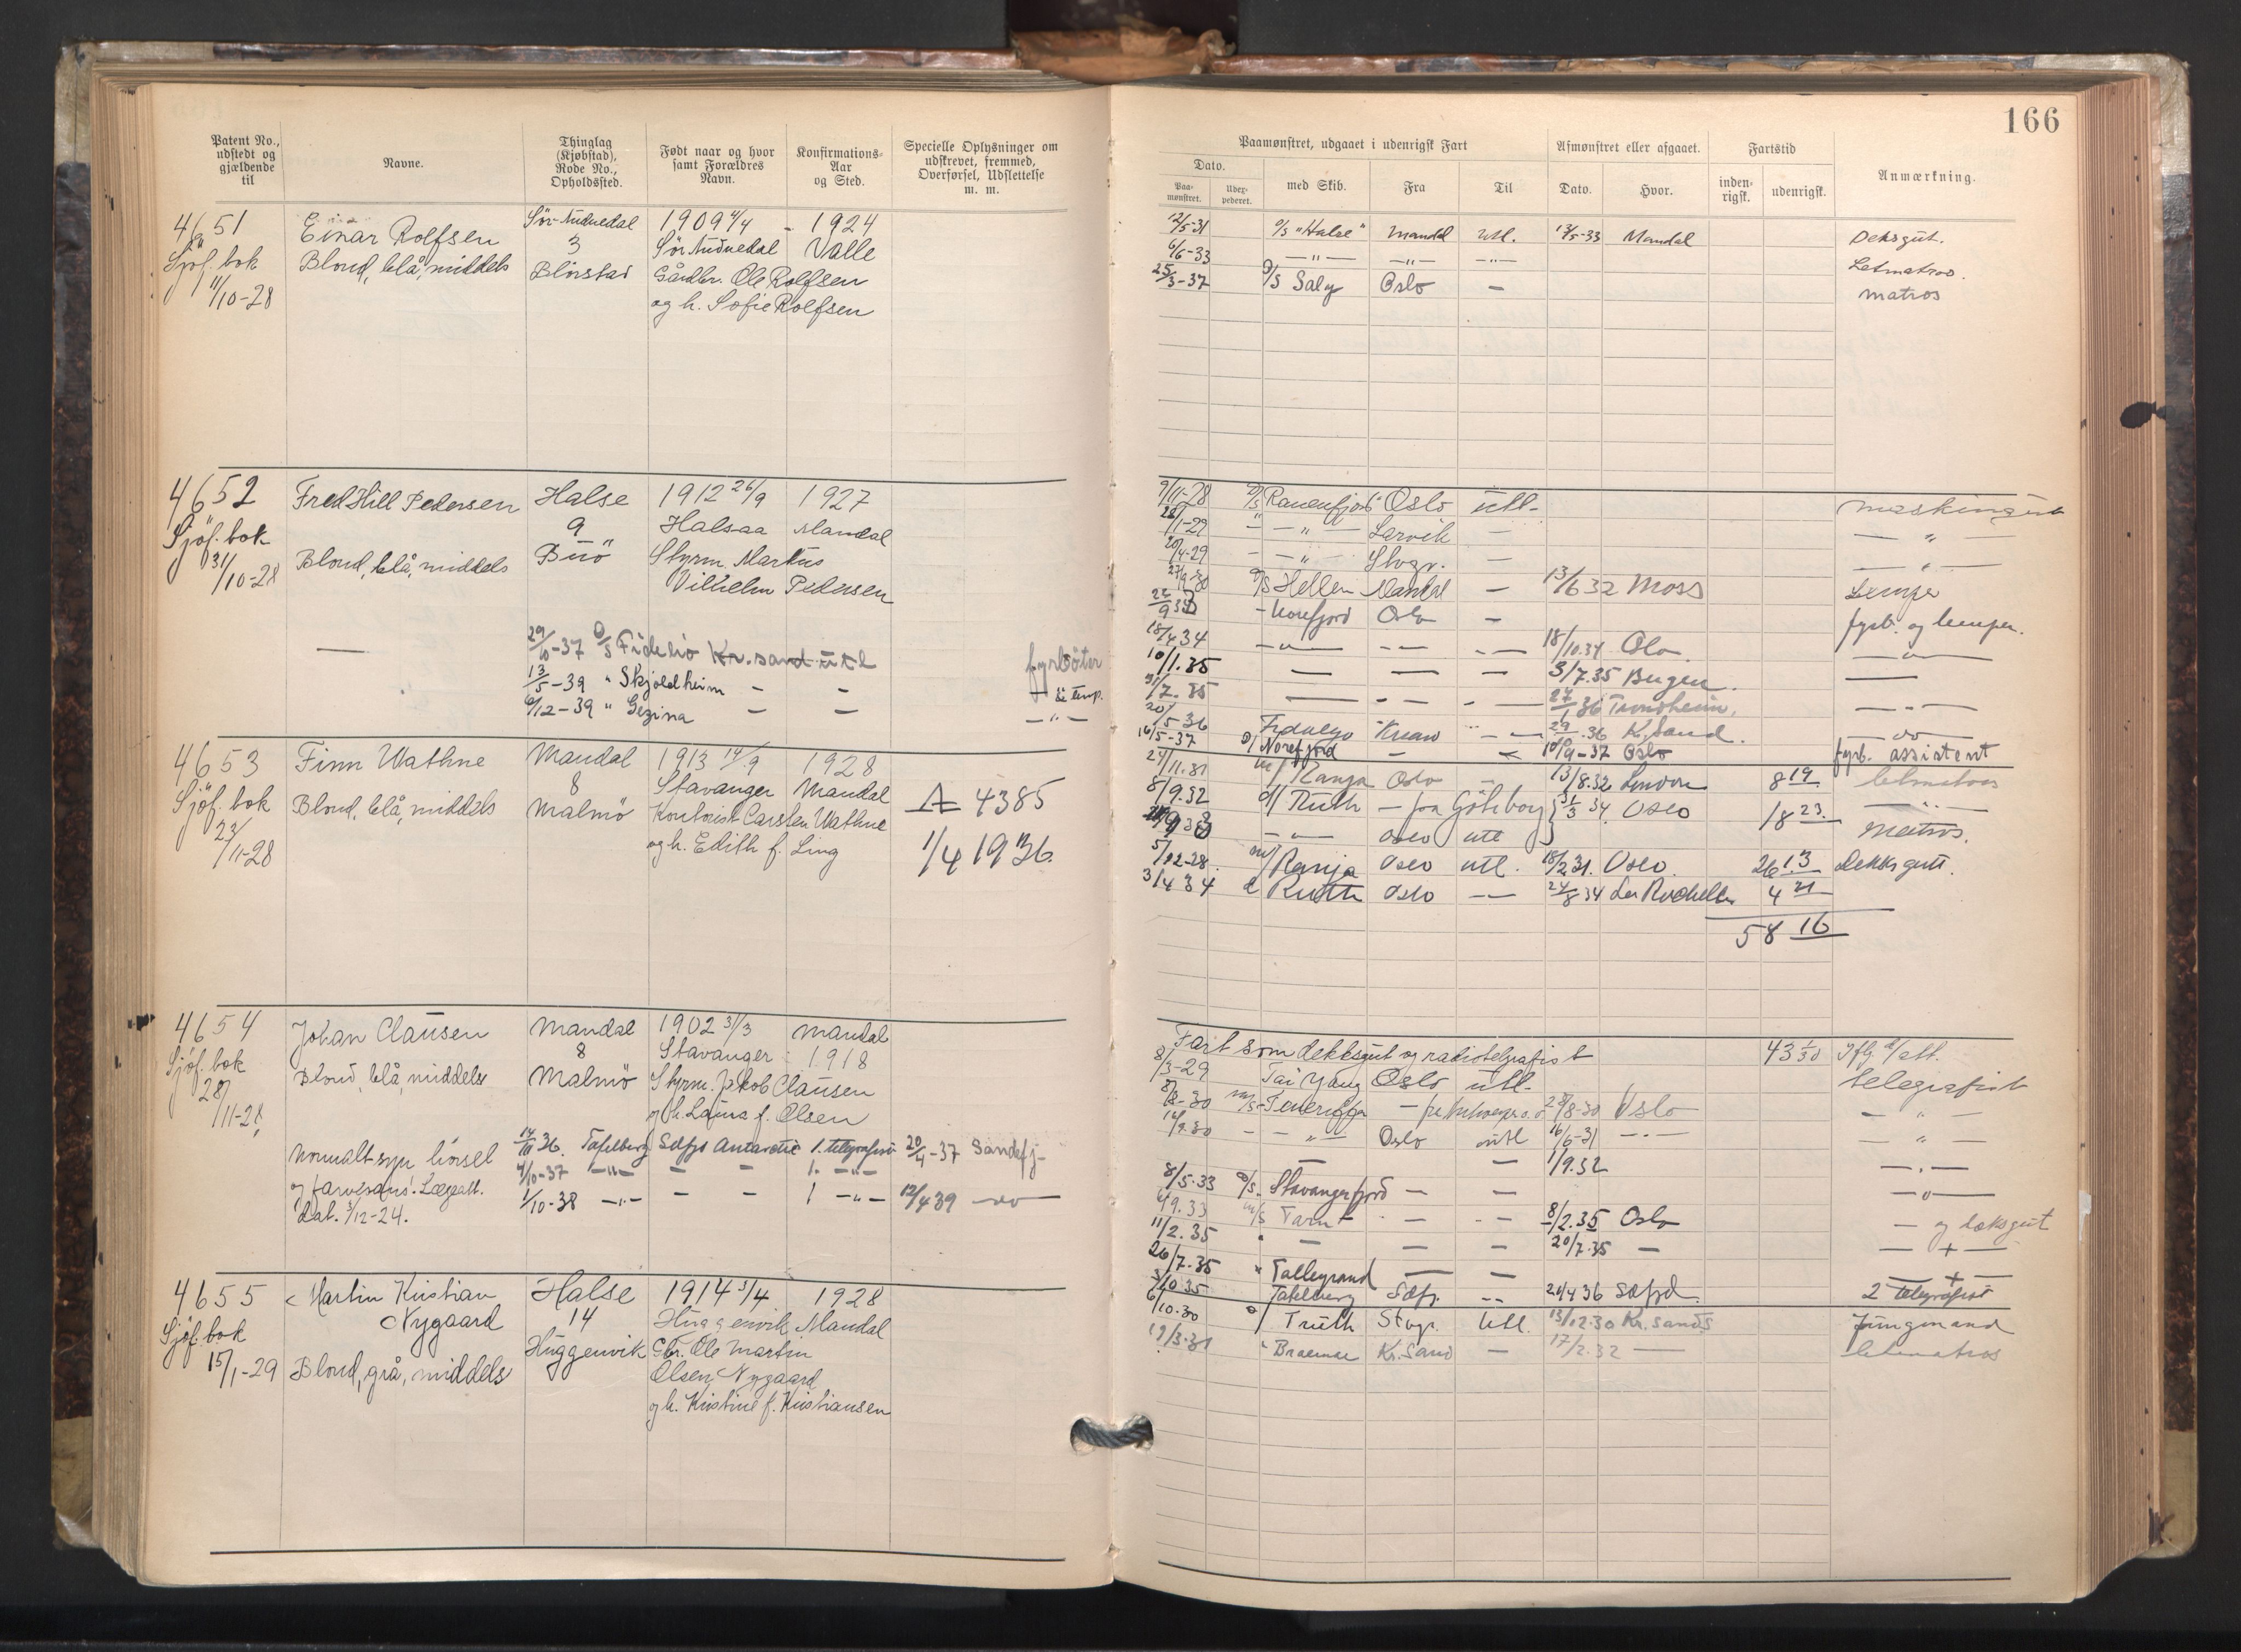 166
Patent No., udstedt og gjældende til
Navne.
Thinglag (Kjøbstad), Rode No., Opholdssted.
Født naar og hvor samt Forældres Navn.
Konfirmations-Aar og Sted.
Specielle Oplysninger om udskrevet, fremmed, Overførsel, Udslettelse m. m.
Paamønstret, udgaaet i udenrigsk Fart
Afmønstret eller afgaaet.
Fartstid
Anmærkning.
Dato.
Paa-mønstret.
Uder-pederet.
med Skib.
Fra
Til
Dato.
Hvor.
inden-rigsk.
udenrigsk.
4651 Einar Rolfsen Sør-Audnedal 1909 4/4 - 1924
Sjöf. bok Blond, blå, middels 3 Sør Audnedal Valle
11/10-28 Blörstad Gårdbr. Ole Rolfsen
og h. Sofie Rolfsen
12/5-31 D/S "Halse" Mandal Utl. 13/5-33 Mandal Deksgut.
6/6-33 —"— —"— —"— Letmatros.
25/3-37 D/S Saly Oslo — matros
4652 Fred Hill Pedersen Halse 1912 26/9 1927
Sjöf. bok 9 Halsaa Mandal
31/10-28 Blond, blå, middels Buö Styrm. Markus
Vilhelm Pedersen
29/10-37 D/S Fidelio Kr.sand utl fyrböter
13/5-39 " Skjoldheim — —
6/12-39 " Gezina — — —"—
9/11-28 D/S Ranenfjord Oslo utl- maskingut
26/1-29 — " — Larvik — — " —
20/4-29 — — " — Stvgr. — — " —
27/9-30 D/S Hellen Mandal — 13/6 32 Moss Lemper
22/9 33 - Norefjord Oslo — fyrb. og lemper.
18/4 34 —"— — — — — 18/10.34 Oslo. —"—
10/1.35 — — — 3/7.35 Bergen. —
31/7.35 — — — 27/1 36 Trondheim. — " —
20/5 36 — — 29/10.36 K.Sand. —do—
16/5-37 D/ Norefjord — — 10/9-37 Oslo fyrb. assistent
4653 Finn Wathne Mandal 1913 14/9 1928
Sjöf. bok 8 Stavanger Mandal
23/11-28 Blond, blå, middels Malmö Kontorist Carsten Wathne
og h. Edith f. Ling
A 4385
1/4 1936.
24/11.31 m/ Ranja Oslo — 13/8.32 London 8 19 letmatros
8/9.32 d/ Ruth — fra Göteborg } 31/3 34. Oslo 18 23. —"—
— " — Oslo utl } matros.
5/12-28 m/ Ranja Oslo utl. 18/2 31. Oslo. 26 13 Dekksgutt.
3/4 34 d Ruth Oslo —"— 24/8 34 La Rochelle 4 21
58 16
4654 Johan Clausen Mandal 1902 31/3 Mandal
Sjöf. bok 8 Stavanger 1918
28/11-28 Blond, blå, middels Malmö Styrm. Jakob Clausen
og h. Laura f. Olsen
Normalt syn hörsel 14/10 36. Tafelberg Sdefjo Antarctic 1. telegrafist 20/4-37 Sandefj-
og farvesans. Lægeatt. 4/10-37 —"— — — 1. —"—
dat. 3/12-24. 1/10-38 —"— — — 1 —"— 12/4 39 —do—
Fart som dekksgut og radiotelegrafist 43 1/30 Iflg. att.
8/3-29 Tai Yang Oslo utl- telegrafist
8/8-30 m/s Teneriffa — 28/8-30 Oslo — " —
14/9.30 — — " — Oslo utl 16/6-31 —"— — " —
— — 1/9.32 —"—
8/5.33 D/s. Stavangerfjord — — —"—
4/9.33 m/s Tarn — — 8/2.35 Oslo — og dæksgut
11/2.35 " — — — 20/7.35 — — + —
26/7.35 " Talleyrand — — — + —
3/10 35 Tafelberg Sdefj. — 24/4 36 Sdefjd. 2 telegrafist
4655 Martin Kristian Halse 1914 3/4 1928
Sjöf. bok Nygaard 14 Huggenvik Mandal
15/1-29 Blond, grå, middels Huggenvik Gbr. Ole Martin
Olsen Nygaard
og h. Kristine f. Kristiansen
6/10.30 D/ Truth Stvgr. Utl. 13/12.30 Kr.sand S Jungmand
19/3.31 " Braemar Kr.Sand — 17/2.32 — letmatros